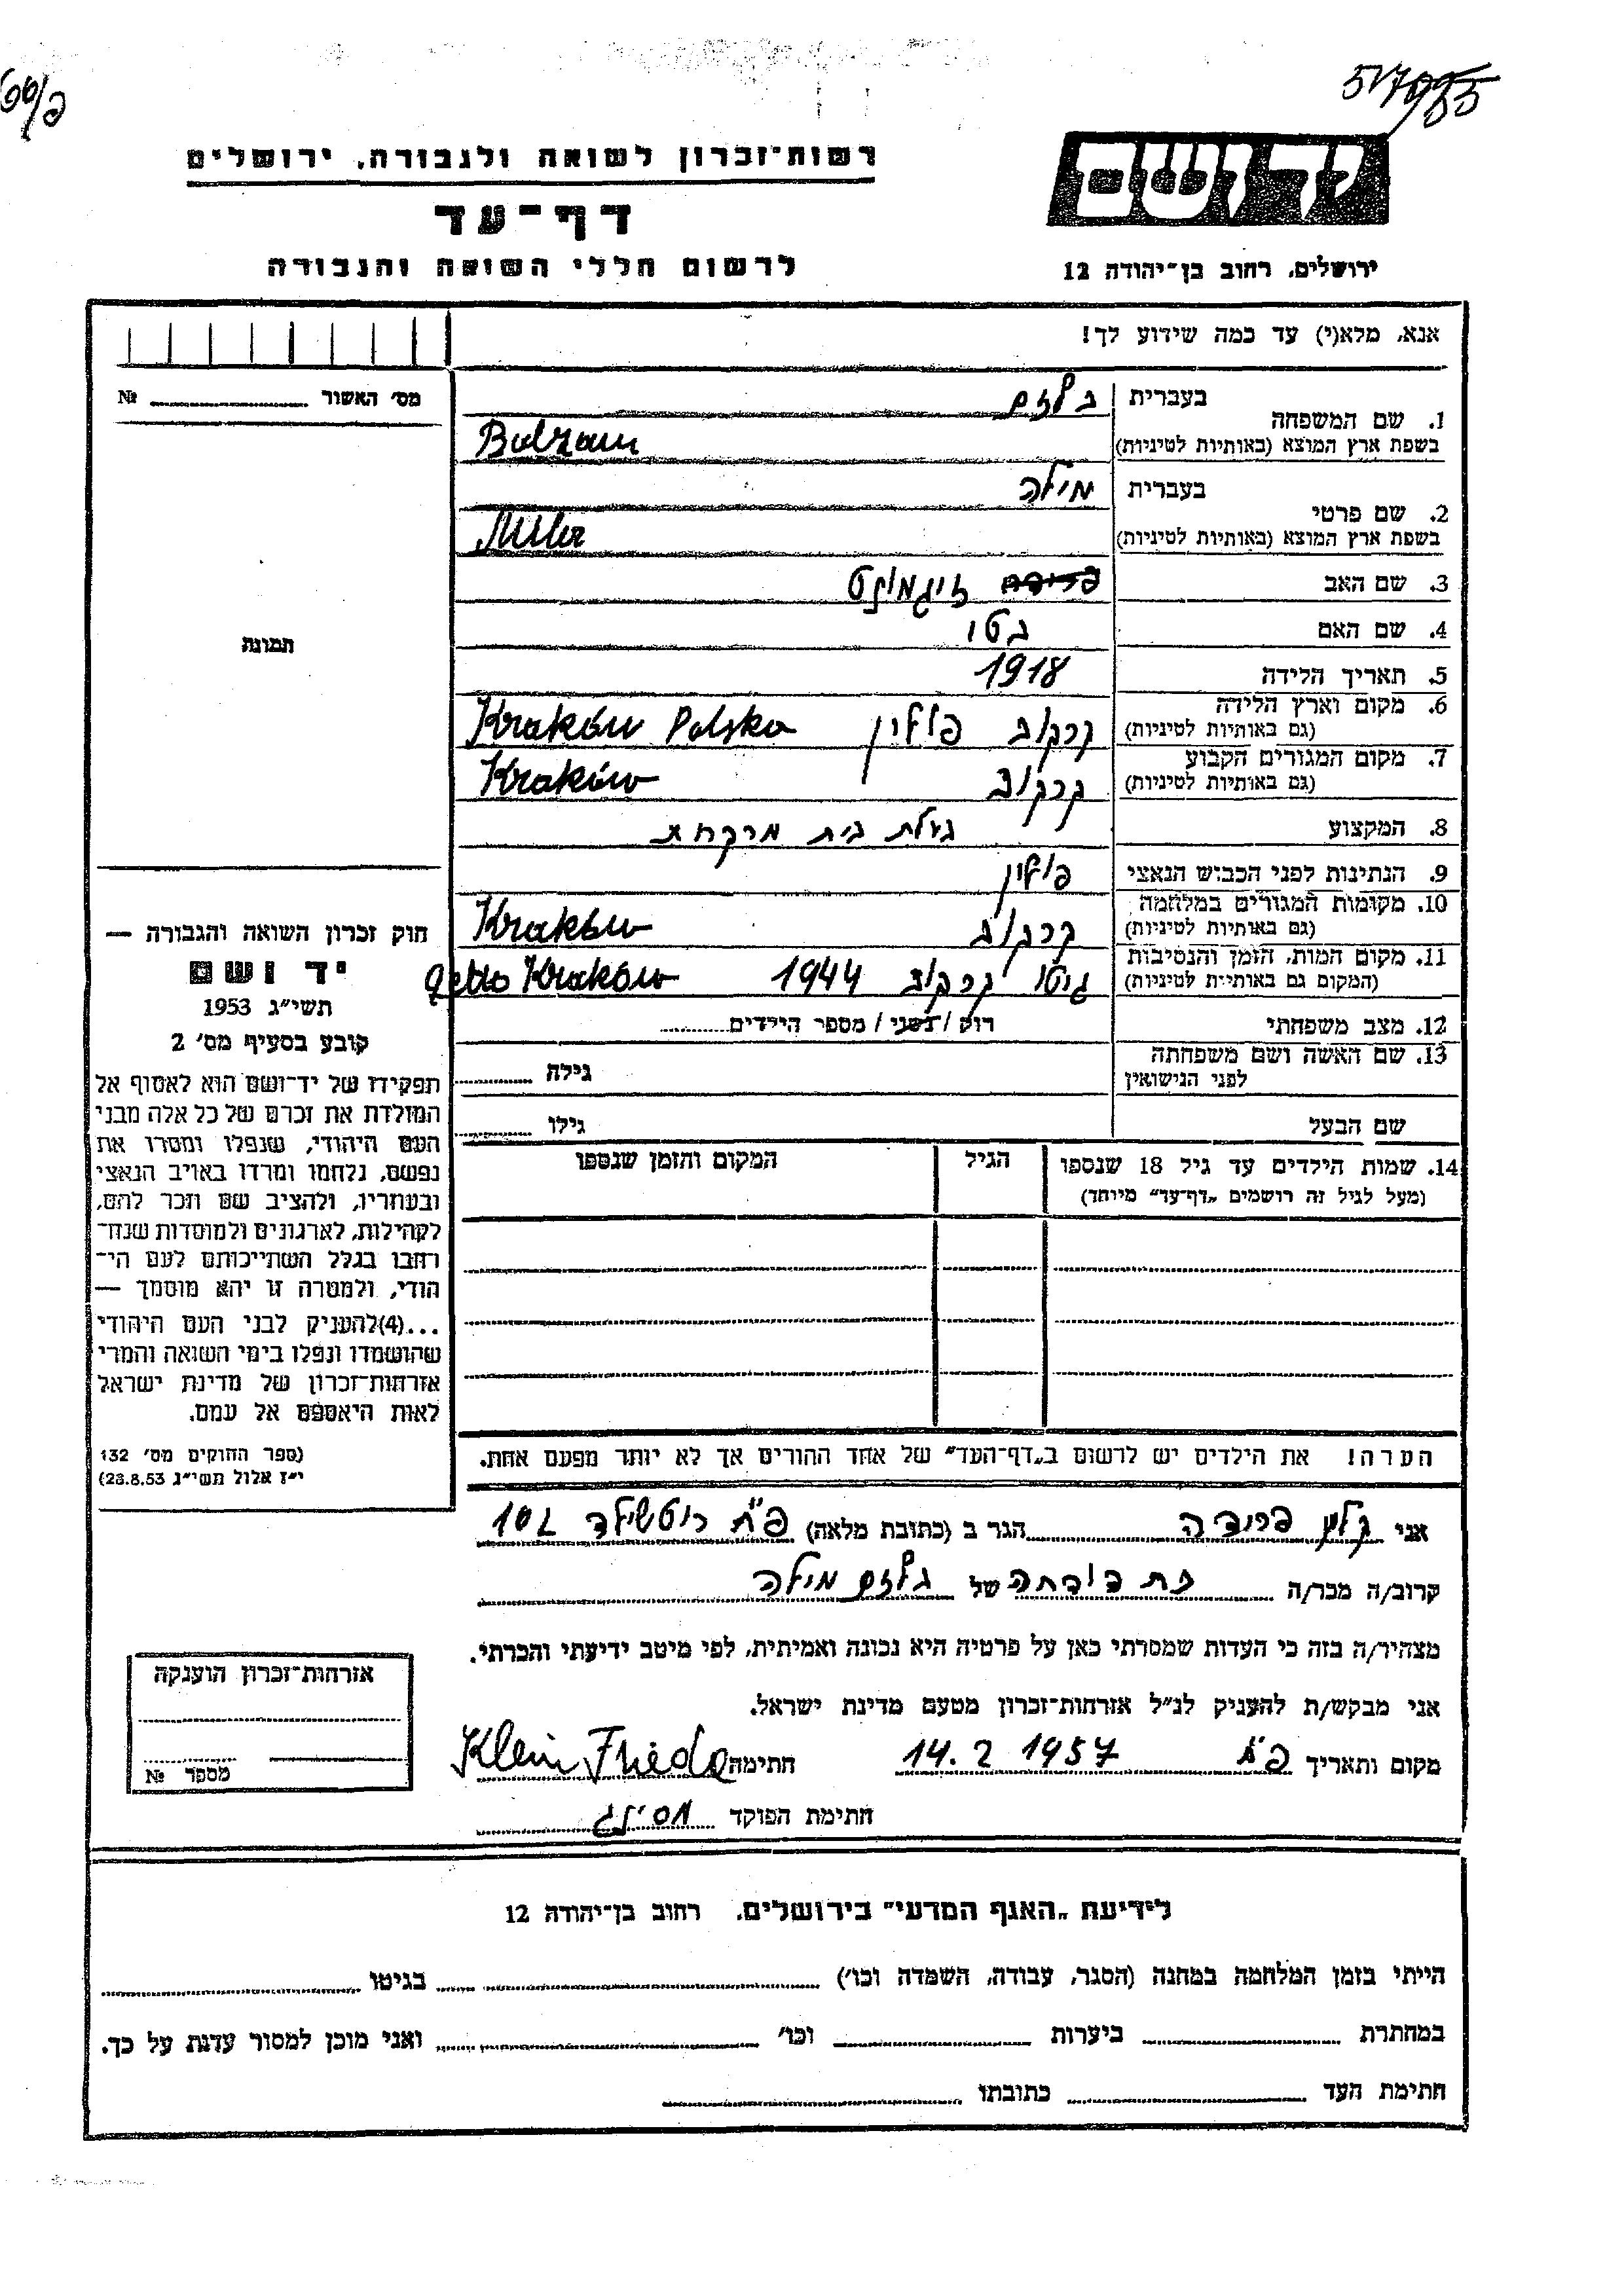 517985
רשות־זכרון לשואה ולגבורה, ירושלים
דף־עד
לרשום חללי השואה והגבורה
יד ושם
ירושלים, רחוב בן־יהודה 12
אנא, מלא(י) עד כמה שידוע לך!
מס׳ האשור № 
1. שם המשפחה
בעברית בלזם
בשפת ארץ המוצא (באותיות לטיניות) Balzam
2. שם פרטי
בעברית מילה
בשפת ארץ המוצא (באותיות לטיניות)
3. שם האב זיגמונט
4. שם האם גטי
5. תאריך הלידה 1918
6. מקום וארץ הלידה
(גם באותיות לטיניות) קרקוב פולין Kraków Polska
7. מקום המגורים הקבוע
(גם באותיות לטיניות) קרקוב Kraków
8. המקצוע בעלת בית מרקחת
9. הנתינות לפני הכבוש הנאצי פולין
10. מקומות המגורים במלחמה
(גם באותיות לטיניות) קרקוב Kraków
11. מקום המות, הזמן והנסיבות
(המקום גם באותיות לטיניות) גיטו קרקוב 1944 getto Kraków
12. מצב משפחתי רוק / נשוי / מספר הילדים
13. שם האשה ושם משפחתה
לפני הנישואין גילה
שם הבעל גילו
14. שמות הילדים עד גיל 18 שנספו הגיל המקום והזמן שנספו
(מעל לגיל זה רושמים „דף־עד״ מיוחד)
הערה! את הילדים יש לרשום ב„דף־העד״ של אחד ההורים אך לא יותר מפעם אחת.
תמונה
חוק זכרון השואה והגבורה —
יד ושם
תשי״ג 1953
קובע בסעיף מס׳ 2
תפקידו של יד־ושם הוא לאסוף אל
המולדת את זכרם של כל אלה מבני
העם היהודי, שנפלו ומסרו את
נפשם, נלחמו ומרדו באויב הנאצי
ובעוזריו, ולהציב שם וזכר להם,
לקהילות, לארגונים ולמוסדות שנח־
רבו בגלל השתייכותם לעם הי־
הודי, ולמטרה זו יהא מוסמך —
...(4)להעניק לבני העם היהודי
שהושמדו ונפלו בימי השואה והמרי
אזרחות־זכרון של מדינת ישראל
לאות היאספם אל עמם.
(ספר החוקים מס׳ 132
י״ז אלול תשי״ג 28.8.53)
אני קליין פרידה הגר ב (כתובת מלאה) פ״ת רוטשילד 107
קרוב/ה מכר/ה בת דודתה של בלזם מילה
מצהיר/ה בזה כי העדות שמסרתי כאן על פרטיה היא נכונה ואמיתית, לפי מיטב ידיעתי והכרתי.
אני מבקש/ת להעניק לנ״ל אזרחות־זכרון מטעם מדינת ישראל.
מקום ותאריך פ״ת 14.2 1957 חתימה Klein Frieda
חתימת הפוקד
אזרחות־זכרון הוענקה
מספר №
לידיעת „האגף המדעי״ בירושלים, רחוב בן־יהודה 12
הייתי בזמן המלחמה במחנה (הסגר, עבודה, השמדה וכו׳) בגיטו
במחתרת ביערות וכו׳ ואני מוכן למסור עדות על כך.
חתימת העד כתובתו